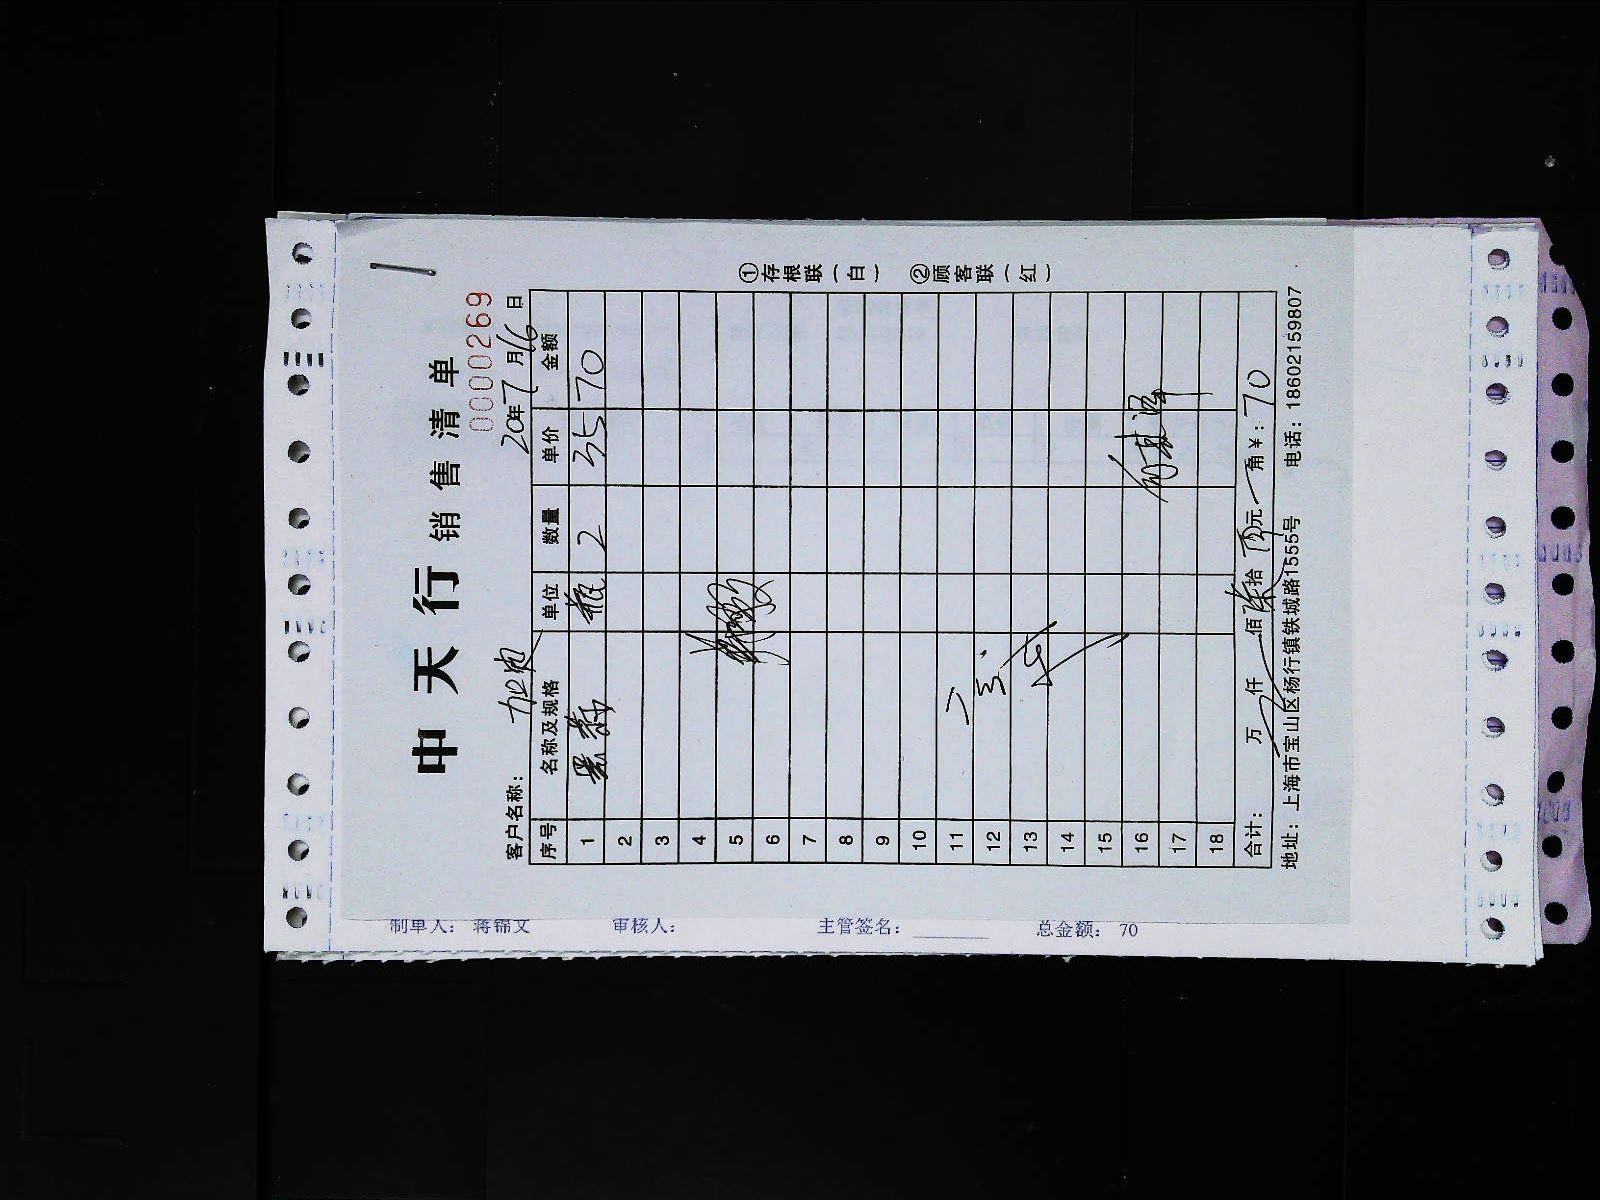 中天行销售清单
0000269
客户名称： 20年7月16日
序号 名称及规格 单位 数量 单价 金额
1 瓶 2 35 70
2
3
4
5
6
7
8
9
10
11
12
13
14
15
16
17
18
合计： 万 仟 佰 拾 元 角￥：70
地址：上海市宝山区杨行镇铁城路1555号 电话：18602159807
①存根联（白） ②顾客联（红）
制单人： 蒋锦文 审核人： 主管签名： 总金额： 70